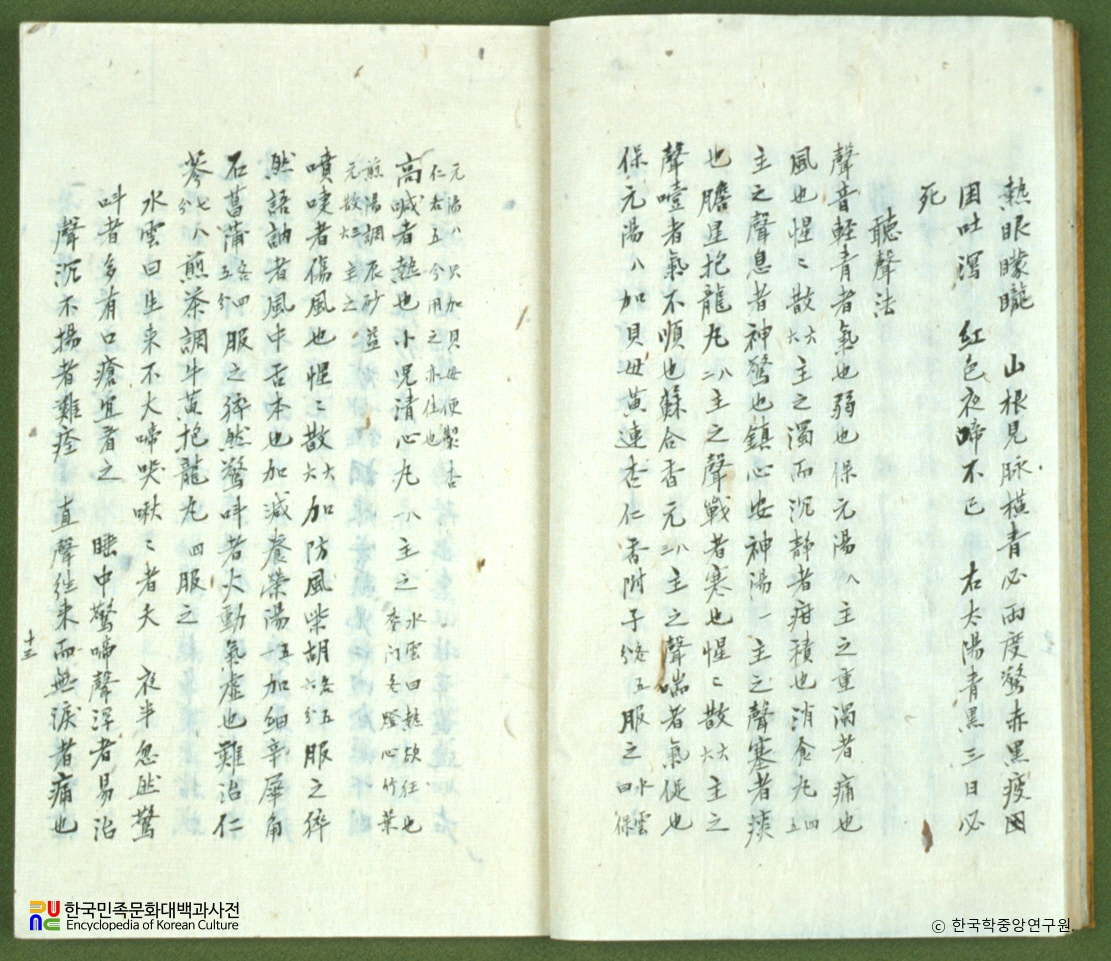 熱眼矇矓 山根見脉橫青必兩度驚赤黑疲困
困吐瀉 紅色夜啼不已 右太陽青黑三日必
死
聽聲法
聲音輕青者氣也弱也保元湯八主之重濁者痛也
風也惺〻散六六主之濁而沉靜者疳積也消食丸四五
主之聲息者神驚也鎮心安神湯一主之聲塞者痰
也膽星抱龍丸二八主之聲戰者寒也惺〻散六六主之
聲噎者氣不順也蘇合香元三八主之聲喘者氣促也
保元湯八加貝母黃連杏仁香附子各五分服之水雲曰保
元湯八只加貝母便製杏
仁右五分用之亦佳也
高喊者熱也小児清心丸八主之水雲曰熱故狂也
麥門冬燈心竹葉
煎湯調辰砂益
元散六三主之
噴嚏者傷風也惺〻散六六加防風柴胡各五六分服之猝
然語訥者風中舌本也加減養榮湯一五加細辛犀角
石菖蒲各四五分服之猝然驚呌者火動氣虛也難治仁
蔘七八分煎茶調牛黃抱龍丸四服之
水雲曰生來不大啼哭啾〻者夭 夜半忽然驚
呌者多有口瘡宜看之 睡中驚啼聲浮者易治
聲沉不揚者難痊 直聲往來而無淚者痛也
十三
한국민족문화대백과사전
Encyclopedia of Korean Culture
© 한국학중앙연구원